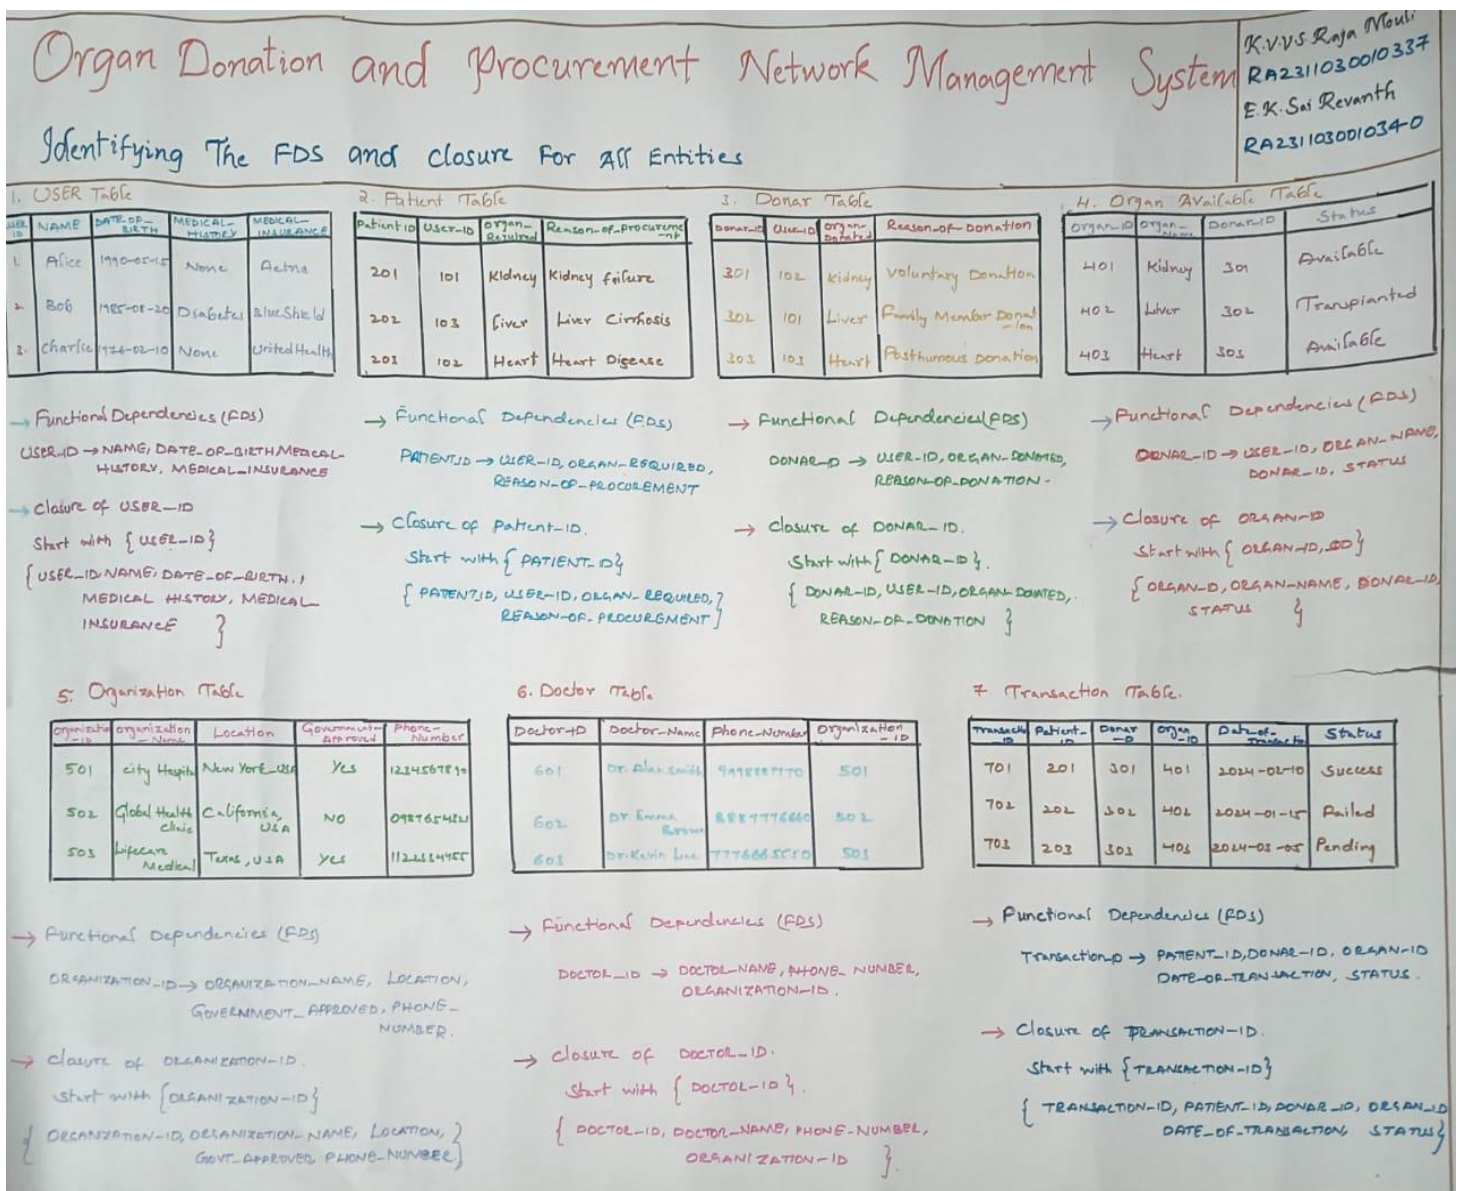 Organ Donation and Procurement Network Management System
K.V.V.S. Raja Mouli
RA2311030010337
E.K. Sai Revanth
RA2311030010340
Identifying The FDS and closure For All Entities
1. USER Table
NAME DATE-OF-BIRTH MEDICAL-HISTORY MEDICAL-INSURANCE
1. Alice 1990-05-15 None Aetna
2. Bob 1985-08-20 Diabetes BlueShield
3. Charlie None United Health
→ Functional Dependencies (FDS)
USER-ID → NAME, DATE-OF-BIRTH MEDICAL-
HISTORY, MEDICAL-INSURANCE
→ Closure of USER-ID
Start with {USER-ID}
{USER-ID NAME, DATE-OF-BIRTH,
MEDICAL HISTORY, MEDICAL
INSURANCE }
2. Patient Table
Patient ID User-ID Organ-Required Reason-of-procurement
201 101 Kidney Kidney failure
202 103 Liver Liver Cirrhosis
203 102 Heart Heart Disease
→ Functional Dependencies (FDS)
PATIENT_ID → USER-ID, ORGAN-REQUIRED,
REASON-OF-PROCUREMENT
→ Closure of Patient-ID.
Start with {PATIENT-ID}
{PATIENT_ID, USER-ID, ORGAN-REQUIRED,
REASON-OF-PROCUREMENT}
3. Donar Table
Donar-ID User-ID Organ-Donated Reason-of-Donation
301 102 Kidney Voluntary Donation
302 101 Liver Family Member Donation
303 103 Heart Posthumous Donation
→ Functional Dependencies (FDS)
DONAR-ID → USER-ID, ORGAN-DONATED,
REASON-OF-DONATION.
→ Closure of DONAR-ID.
Start with {DONAR-ID}.
{DONAR-ID, USER-ID, ORGAN-DONATED,
REASON-OF-DONATION }
4. Organ Available Table
Organ-ID Organ-Name Donar-ID Status
401 Kidney 301 Available
402 Liver 302 Transplanted
403 Heart 303 Available
→ Functional Dependencies (FDS)
DONAR-ID → USER-ID, ORGAN-NAME,
DONAR-ID, STATUS
→ Closure of ORGAN-ID
Start with {ORGAN-ID, }
{ORGAN-ID, ORGAN-NAME, DONAR-ID,
STATUS }
5. Organization Table
Organization-ID Organization-Name Location Government-Approved Phone-Number
501 City Hospital New York, USA Yes 1234567890
502 Global Health Clinic California, USA NO
503 Lifecare Medical Texas, USA Yes
→ Functional Dependencies (FDS)
ORGANIZATION-ID → ORGANIZATION-NAME, LOCATION,
GOVERNMENT_APPROVED, PHONE-
NUMBER.
→ Closure of ORGANIZATION-ID.
Start with {ORGANIZATION-ID}
{ORGANIZATION-ID, ORGANIZATION-NAME, LOCATION,
GOVT-APPROVED, PHONE-NUMBER}
6. Doctor Table
Doctor-ID Doctor-Name Phone-Number Organization-ID
601 Dr. Alan Smith 501
602 Dr. Emma Brown 502
603 Dr. Kevin Lee 503
→ Functional Dependencies (FDS)
DOCTOR_ID → DOCTOR-NAME, PHONE_NUMBER,
ORGANIZATION-ID.
→ Closure of DOCTOR_ID.
Start with {DOCTOR-ID}.
{DOCTOR-ID, DOCTOR-NAME, PHONE-NUMBER,
ORGANIZATION-ID }.
7 Transaction Table.
Patient-ID Donar-ID Organ-ID Status
701 201 301 401 2024-02-10 Success
702 202 302 402 2024-01-15 Failed
703 203 303 403 2024-03-05 Pending
→ Functional Dependencies (FDS)
Transaction_ID → PATIENT_ID, DONAR-ID, ORGAN-ID
DATE-OF-TRANSACTION, STATUS.
→ Closure of TRANSACTION-ID.
Start with {TRANSACTION-ID}
{TRANSACTION-ID, PATIENT-ID, DONAR-ID, ORGAN-ID
DATE_OF-TRANSACTION, STATUS}